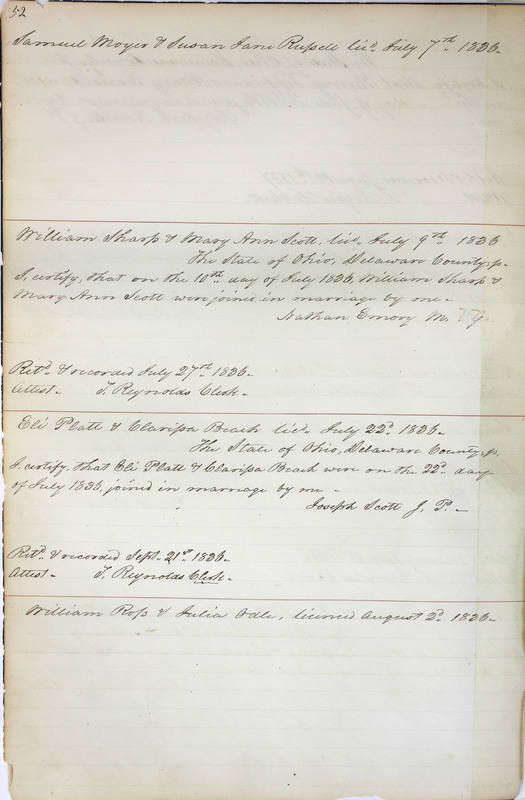 52
Samuel Moyer & Susan Jane Russell licd. July 7th. 1836.
William Sharp & Mary Ann Scott, licd. July 9th. 1836
The State of Ohio, Delaware County, ss.
I, certify, that on the 10th day of July 1836, William Sharp &
Mary Ann Scott were joined in marriage by me.
Nathan Emory M. G.
Retd. & recorded July 27th. 1836.
Attest. T. Reynolds Clerk.
Eli Platt & Clarissa Beach licd. July 22d. 1836.
The State of Ohio, Delaware County, ss.
I certify, that Eli Platt & Clarissa Beach were on the 22d. day
of July 1836, joined in marriage by me.
Joseph Scott J. P.
Retd. & recorded Sept. 21st. 1836.
Attest. T. Reynolds Clerk.
William Ross & Julia Odle, licenced August 2d. 1836.